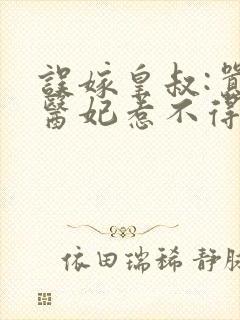 誤嫁皇叔:
醫妃惹不得
依田瑞稀 静